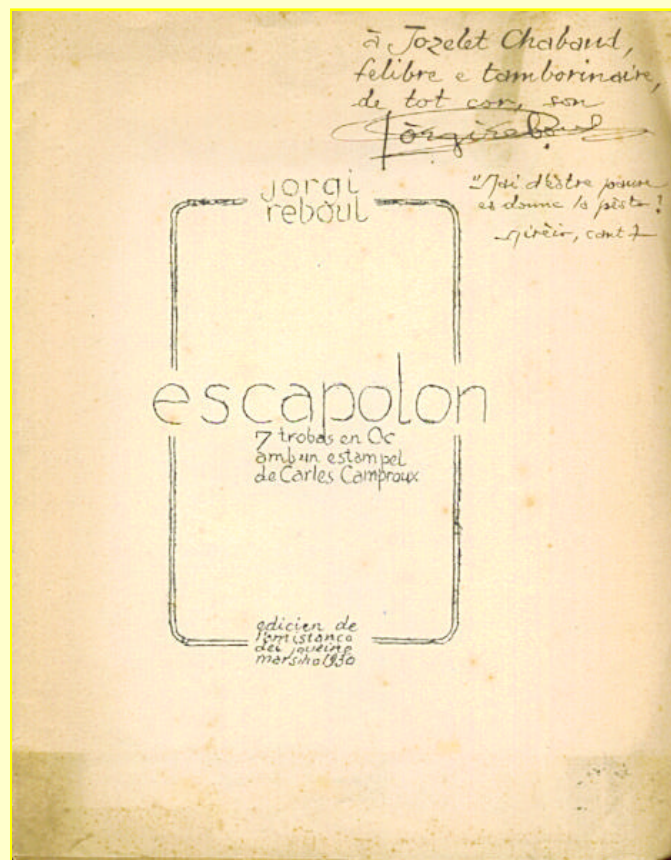 à Jozelet Chabaud,
felibre e tamborinaire,
de tot cor, son
Jòrgi Reboul
"Mai d'èstre paure
es donne la pèsto!
Mirèio, cant 7
jorgi
reboul
escapolon
7 trobas en Oc
amb un estampel
de Carles Camproux
edicien de
l'amistanço
dei joueine
marsiho 1930